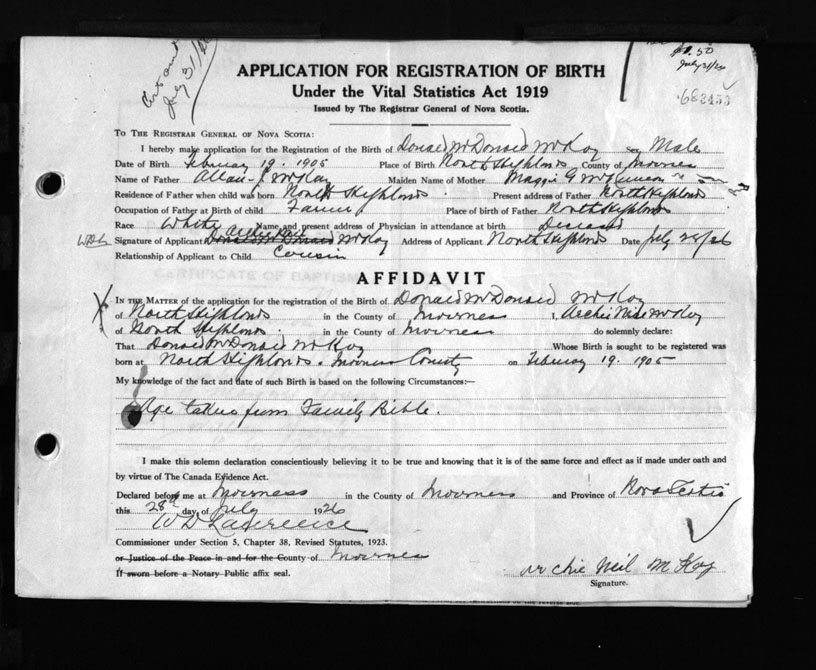 July 31/26
$1.50
July 31/26
APPLICATION FOR REGISTRATION OF BIRTH
Under the Vital Statistics Act 1919
Issued by The Registrar General of Nova Scotia.
TO THE REGISTRAR GENERAL OF NOVA SCOTIA:
I hereby make application for the Registration of the Birth of Donald McDonald McKay Sex Male
Date of Birth February 19. 1905 Place of Birth North Highlands County of Inverness
Name of Father Allan J. McKay Maiden Name of Mother Maggie G
Residence of Father when child was born North Highlands Present address of Father North Highlands
Occupation of Father at Birth of child Farmer Place of birth of Father North Highlands
Race White Name and present address of Physician in attendance at birth Deceased
Signature of Applicant Archie Neil Donald McDonald McKay Address of Applicant North Highlands Date July 28/26
Relationship of Applicant to Child Cousin
AFFIDAVIT
IN THE MATTER of the application for the registration of the Birth of Donald McDonald McKay
of North Highlands in the County of Inverness I, Archie Neil McKay
of North Highlands in the County of Inverness do solemnly declare:
That Donald McDonald McKay Whose Birth is sought to be registered was
born at North Highlands. Inverness County on February 19. 1905
My knowledge of the fact and date of such Birth is based on the following Circumstances:—
Age taken from Family Bible.
I make this solemn declaration conscientiously believing it to be true and knowing that it is of the same force and effect as if made under oath and
by virtue of The Canada Evidence Act.
Declared before me at Inverness in the County of Inverness and Province of Nova Scotia
this 28th day of July 1926
W D Lawrence
Commissioner under Section 5, Chapter 38, Revised Statutes, 1923.
or Justice of the Peace in and for the County of Inverness
If sworn before a Notary Public affix seal.
Archie Neil McKay
Signature.